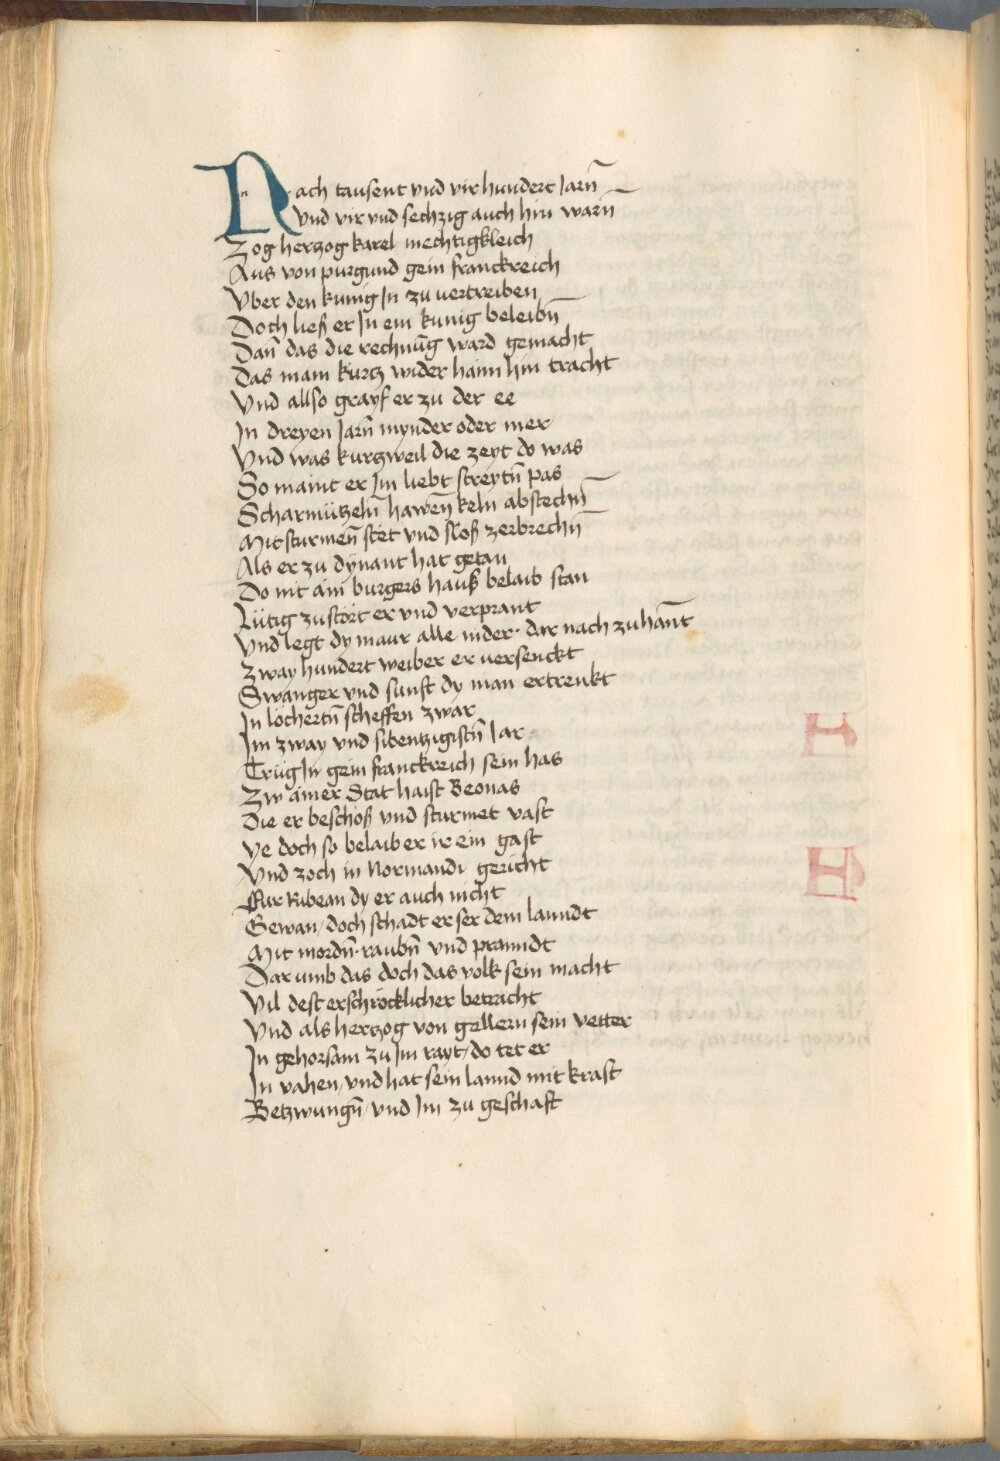 Nach tausent vnd vir hundert Jarn̄
Vnd vir vnd sechzig auch hin warn̄
Zog herzog karel mechtigkleich
Aus von purgund gein franckreich
Vber den kunig In zu uertreiben
Doch ließ er In ein kunig beleibn̄
Dan̄ das die rechnūg ward gemacht
Das mam kurtz wider haim hin tracht
Vnd allso grayf er zu der ee
In dreyen Jarn̄ mynder oder mer
Vnd was kurtzweil die zeyt do was
So maint er Im liebt streytn̄ pas
Scharmützeln̄ hawen̄ keln abstechn̄
Mit sturmen̄ stet vnd sloß zerbrechn̄
Als er zu dynant hat getan
Do nit aim burgers hauß belaib stan
Lütig zustört er vnd verprant
Vnd legt dy maur alle nider· dar nach zuhan̄t
Zway hundert weiber er uersenckt
Swanger vnd sunst dy man ertrenkt
In löchertn̄ scheffen zwar
Im zway vnd sibentzigistn̄ Jar
Trüg In gein franckreich sein has
Zw ainer Stat haist Beonas
Die er beschoß vnd sturmet vast
Ye doch so belaib er ir ein gast
Vnd zoch in Normandi gericht
Fur Ribean dy er auch nicht
Gewan/ doch schadt er ser dem lanndt
Mit mordn̄· raubn̄ vnd pranndt
Dar umb das doch das volk sein macht
Vil dest erschröcklicher betracht
Vnd als hertzog von gellern sein vetter
In gehorsam zu Im rayt/ do tet er
In vahen/ vnd hat sein lannd mit kraft
Betzwungn̄/ vnd Im zu geschaft